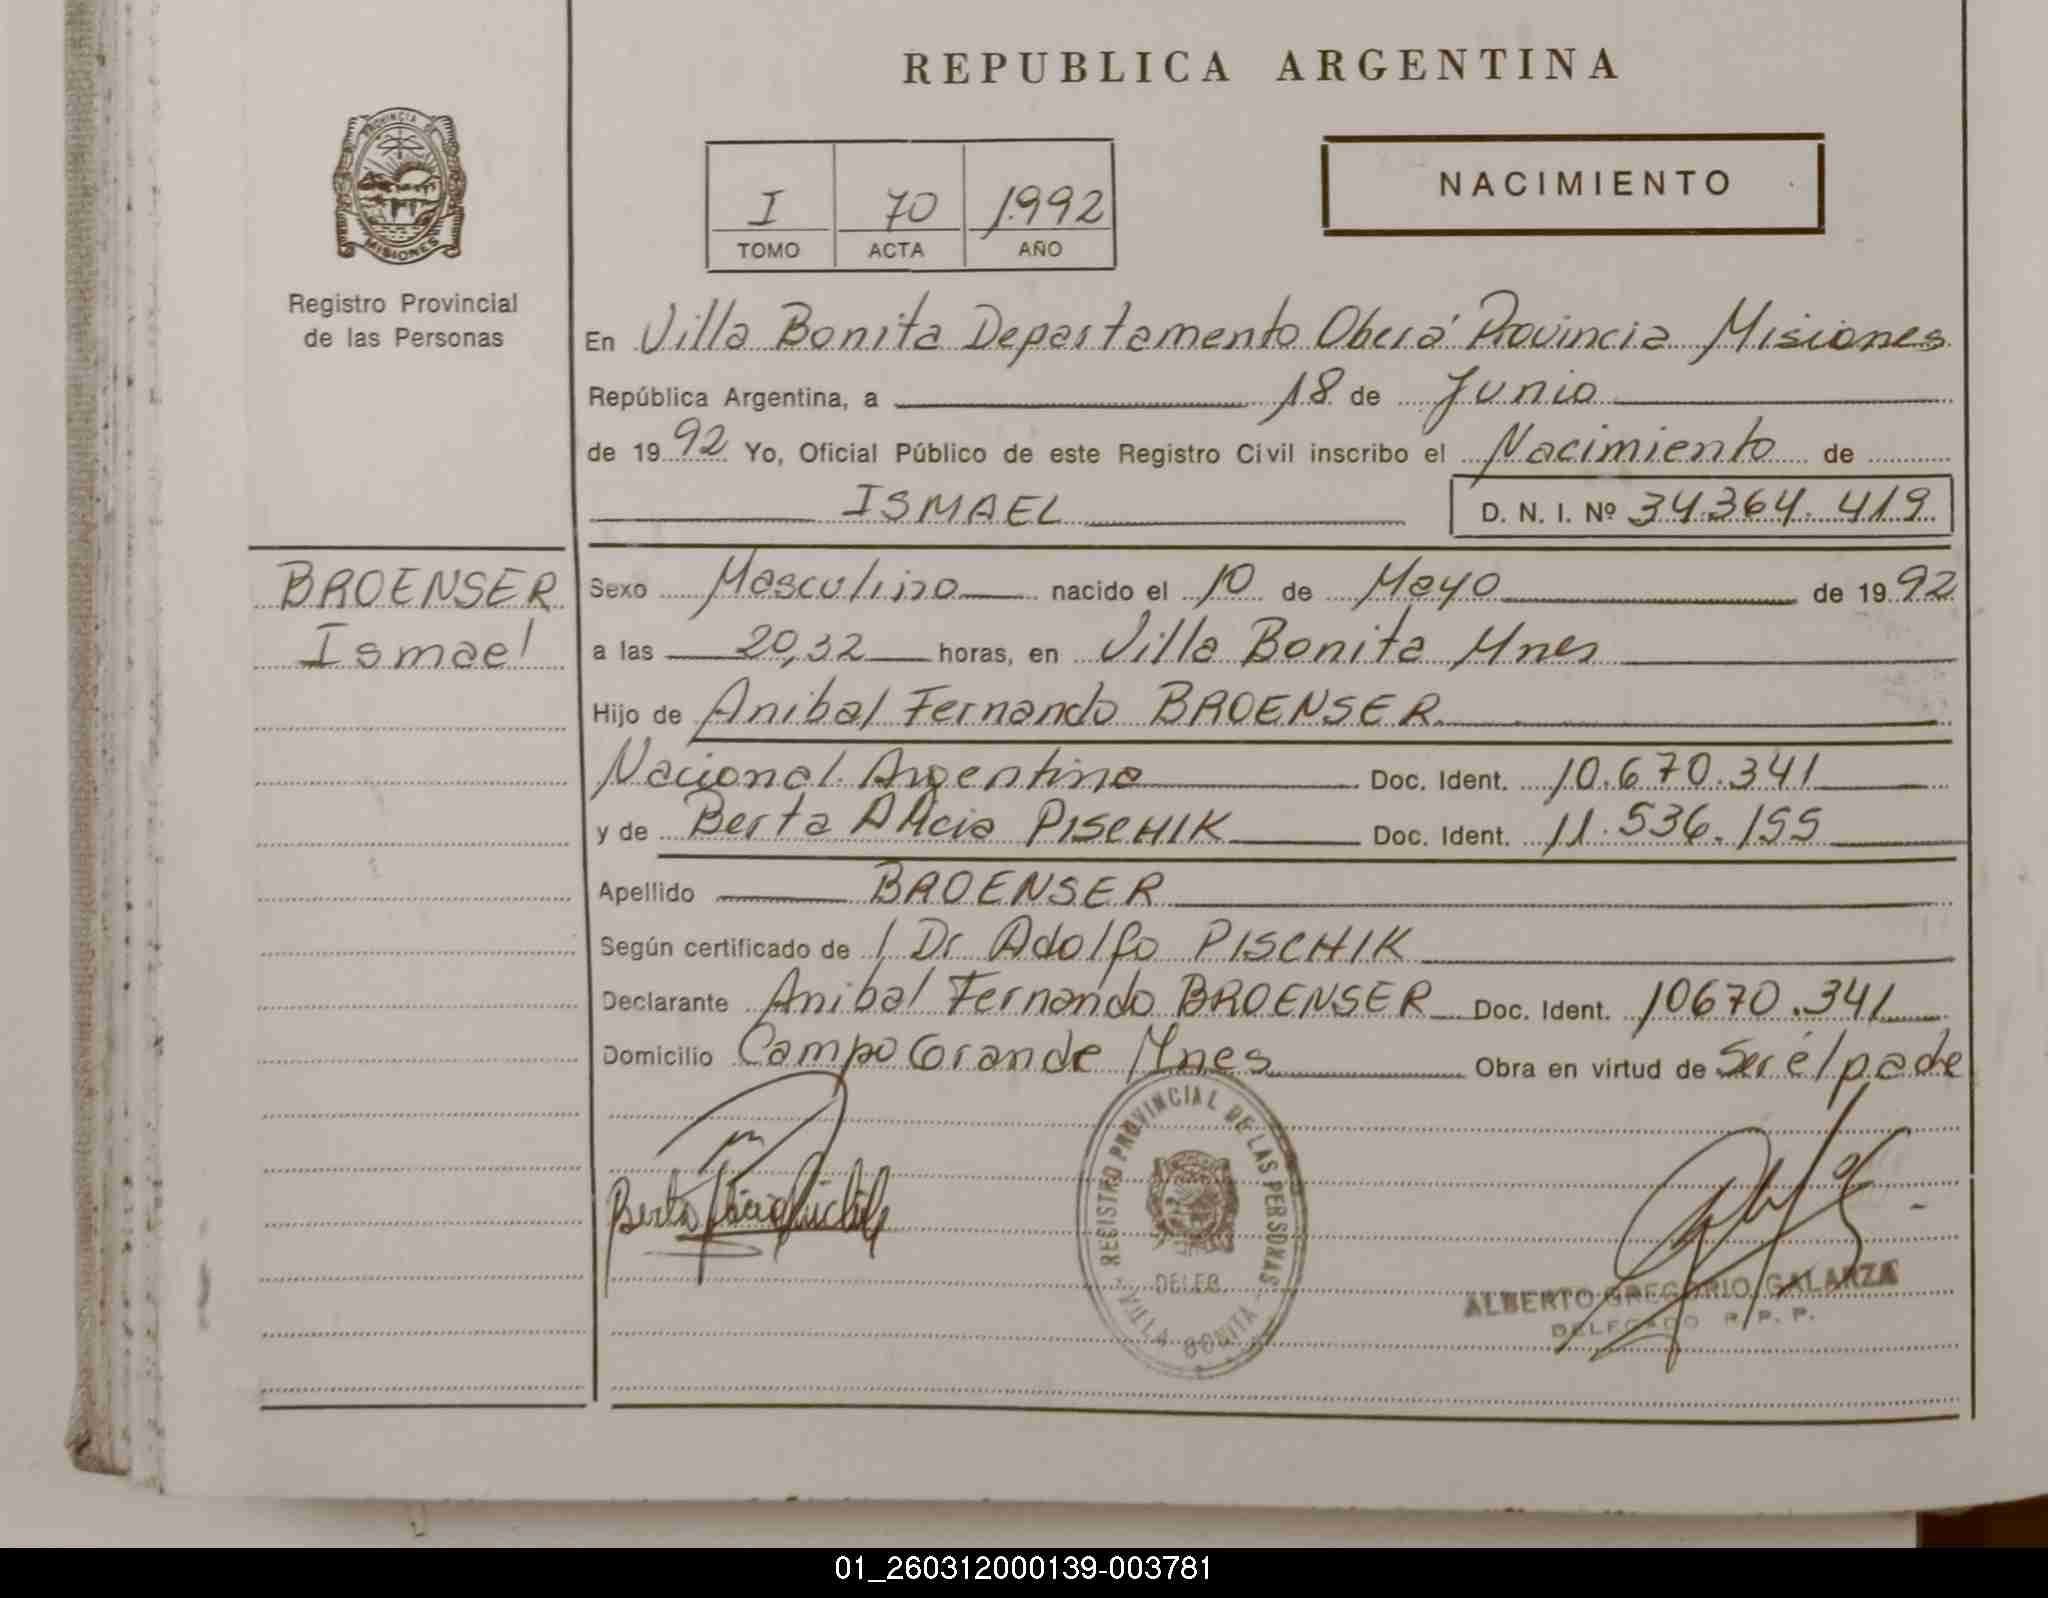 REPUBLICA ARGENTINA
PROVINCIA DE
MISIONES
Registro Provincial
de las Personas
I 70 1.992
TOMO ACTA AÑO
NACIMIENTO
En Villa Bonita Departamento Oberá Provincia Misiones
República Argentina, a 18 de Junio
de 19 92 Yo, Oficial Público de este Registro Civil inscribo el Nacimiento de
ISMAEL D. N. I. Nº 34.364.419
BROENSER
Ismael
Sexo Masculino nacido el 10 de Mayo de 19 92
a las 20,32 horas, en Villa Bonita Mnes
Hijo de Anibal Fernando BROENSER
Nacional. Argentina Doc. Ident. 10.670.341
y de Berta Alicia PISCHIK Doc. Ident. 11.536.155
Apellido BROENSER
Según certificado de / Dr Adolfo PISCHIK
Declarante Anibal Fernando BROENSER Doc. Ident. 10670.341
Domicilio Campo Grande Mnes Obra en virtud de Ser él padre
Berta Alicia Pischik
REGISTRO PROVINCIAL DE LAS PERSONAS
DELEG.
VILLA BONITA
ALBERTO GREGORIO GALARZA
DELEGADO R. P. P.
01_260312000139-003781